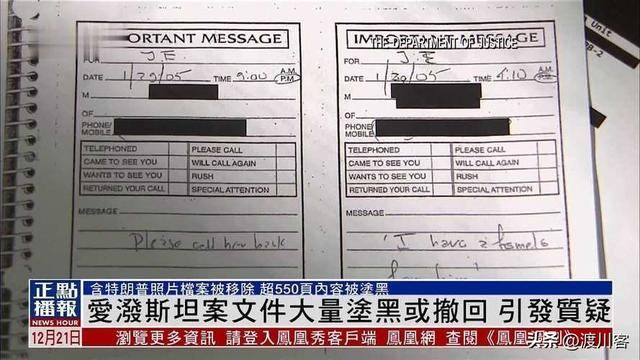 IMPORTANT MESSAGE
THE DEPARTMENT OF JUSTICE
FOR J.E
DATE 1/29/05 TIME 9:00 A.M. P.M.
M
OF
PHONE/
MOBILE
TELEPHONED PLEASE CALL
CAME TO SEE YOU WILL CALL AGAIN
WANTS TO SEE YOU RUSH
RETURNED YOUR CALL SPECIAL ATTENTION
MESSAGE
Please call her back
IMPORTANT MESSAGE
FOR J.E
DATE 1/29/05 TIME 4:10 A.M. P.M.
M
OF
PHONE/
MOBILE
TELEPHONED PLEASE CALL
CAME TO SEE YOU WILL CALL AGAIN
WANTS TO SEE YOU RUSH
RETURNED YOUR CALL SPECIAL ATTENTION
MESSAGE
"I have a female
Unit
正點播報
NEWS HOUR
12月21日
含特朗普照片檔案被移除 超550頁內容被塗黑
愛潑斯坦案文件大量塗黑或撤回 引發質疑
瀏覽更多資訊 請登入鳳凰秀客戶端 鳳凰網 查閱《鳳凰
头条@渡川客